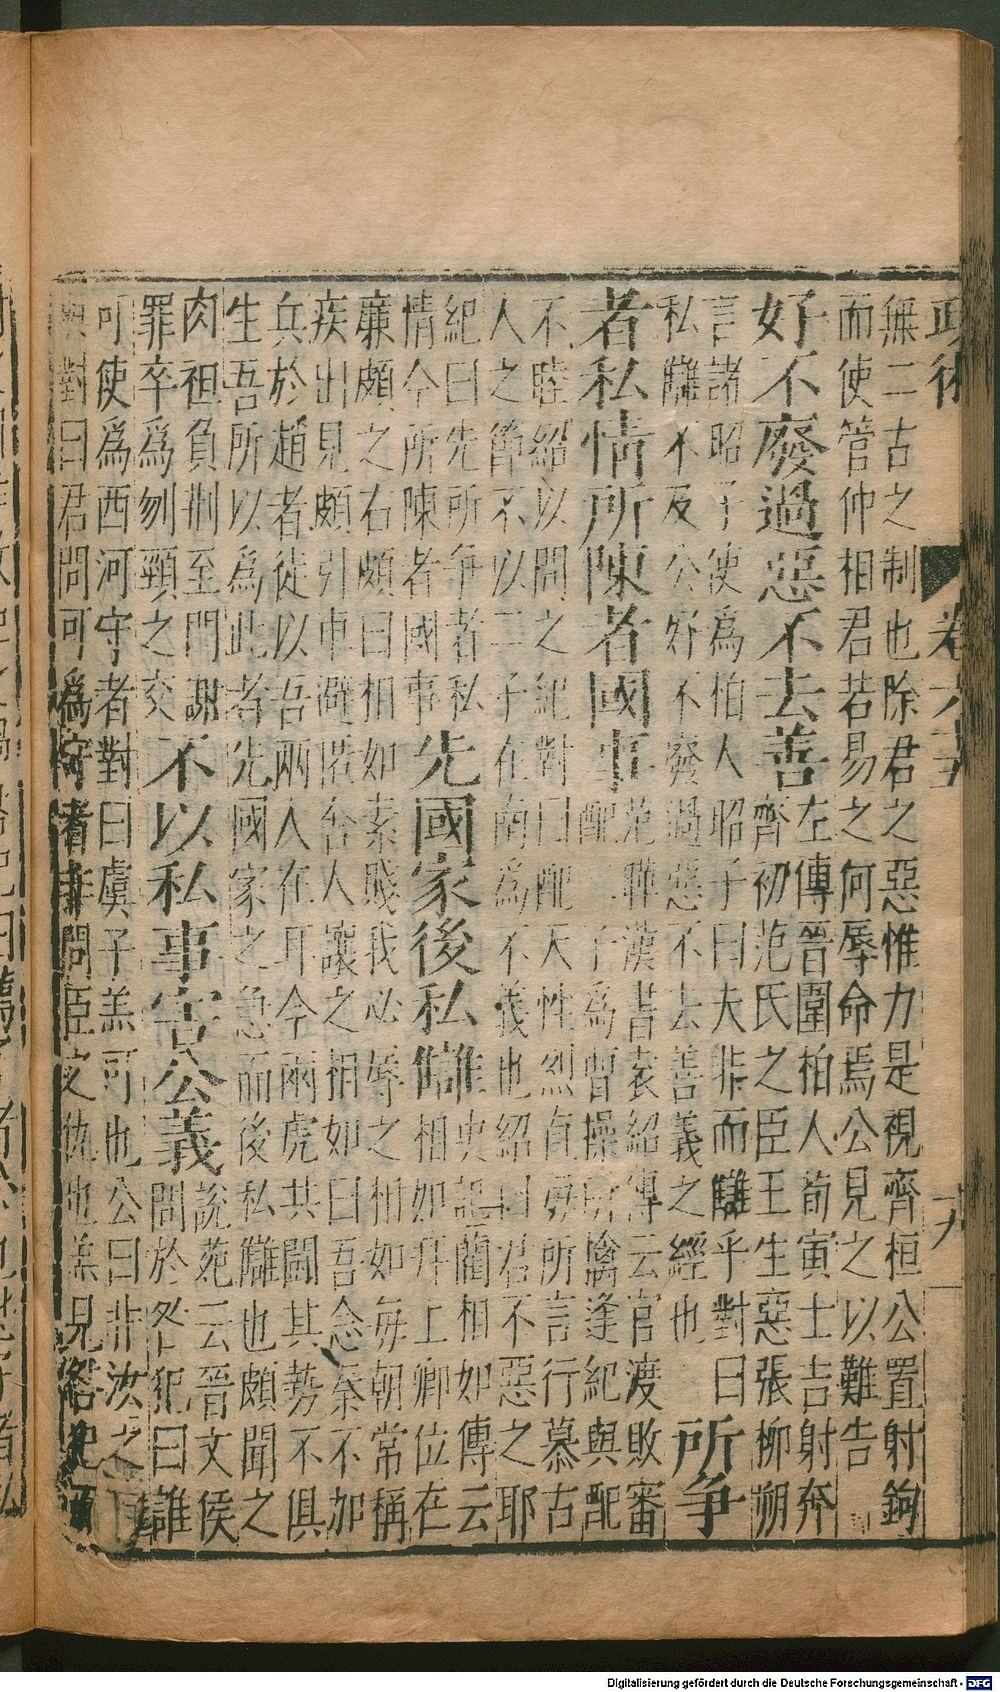 卷六十五 十九
無二古之制也除君之惡惟力是視齊桓公置射鉤
而使管仲相君若易之何辱命焉公見之以難告
好不廢過惡不去善
左傳晉圍柏人荀寅士吉射奔
齊初范氏之臣王生惡張柳朔
言諸昭子使爲柏人昭子曰夫非而讎乎對曰
私讎不及公好不廢過惡不去善義之經也
所爭
者私情所陳者國事
范曄漢書袁紹傳云官渡敗審
配二子爲曹操所擒逢紀與配
不睦紹以問之紀對曰配天性烈直每所言行慕古
人之節不以二子在南爲不義也紹曰君不惡之耶
紀曰先所爭者私
情今所陳者國事
先國家後私讎
史記藺相如傳云
相如拜上卿位在
廉頗之右頗曰相如素賤我必辱之相如每朝常稱
疾出見頗引車避匿舍人讓之相如曰吾念秦不加
兵於趙者徒以吾兩人在耳今兩虎共鬬其勢不俱
生吾所以爲此者先國家之急而後私讎也頗聞之
肉袒負荆至門謝
罪卒爲刎頸之交
不以私事害公義
說苑云晉文侯
問於咎犯曰誰
可使爲西河守者對曰虞子羔可也公曰非汝之
與對曰君問可爲守者非問臣之仇也羔見咎犯而
Digitalisierung gefördert durch die Deutsche Forschungsgemeinschaft - DFG